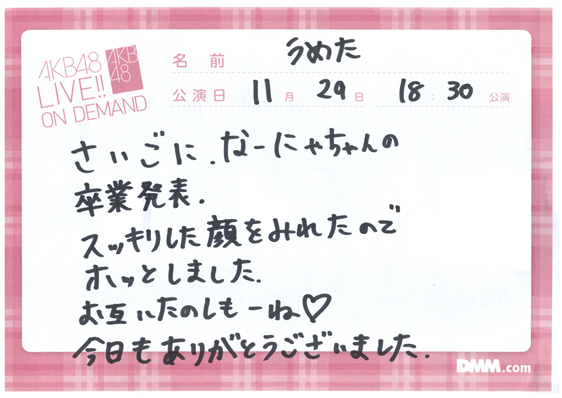 AKB48
LIVE!!
ON DEMAND
AKB
48
名前 うめた
公演日 11月 29日 18:30 公演
さいごに、なーにゃちゃんの
卒業発表.
スッキリした顔をみれたので
ホッとしました.
お互いたのしもーね♡
今日もありがとうございました.
DMM.com